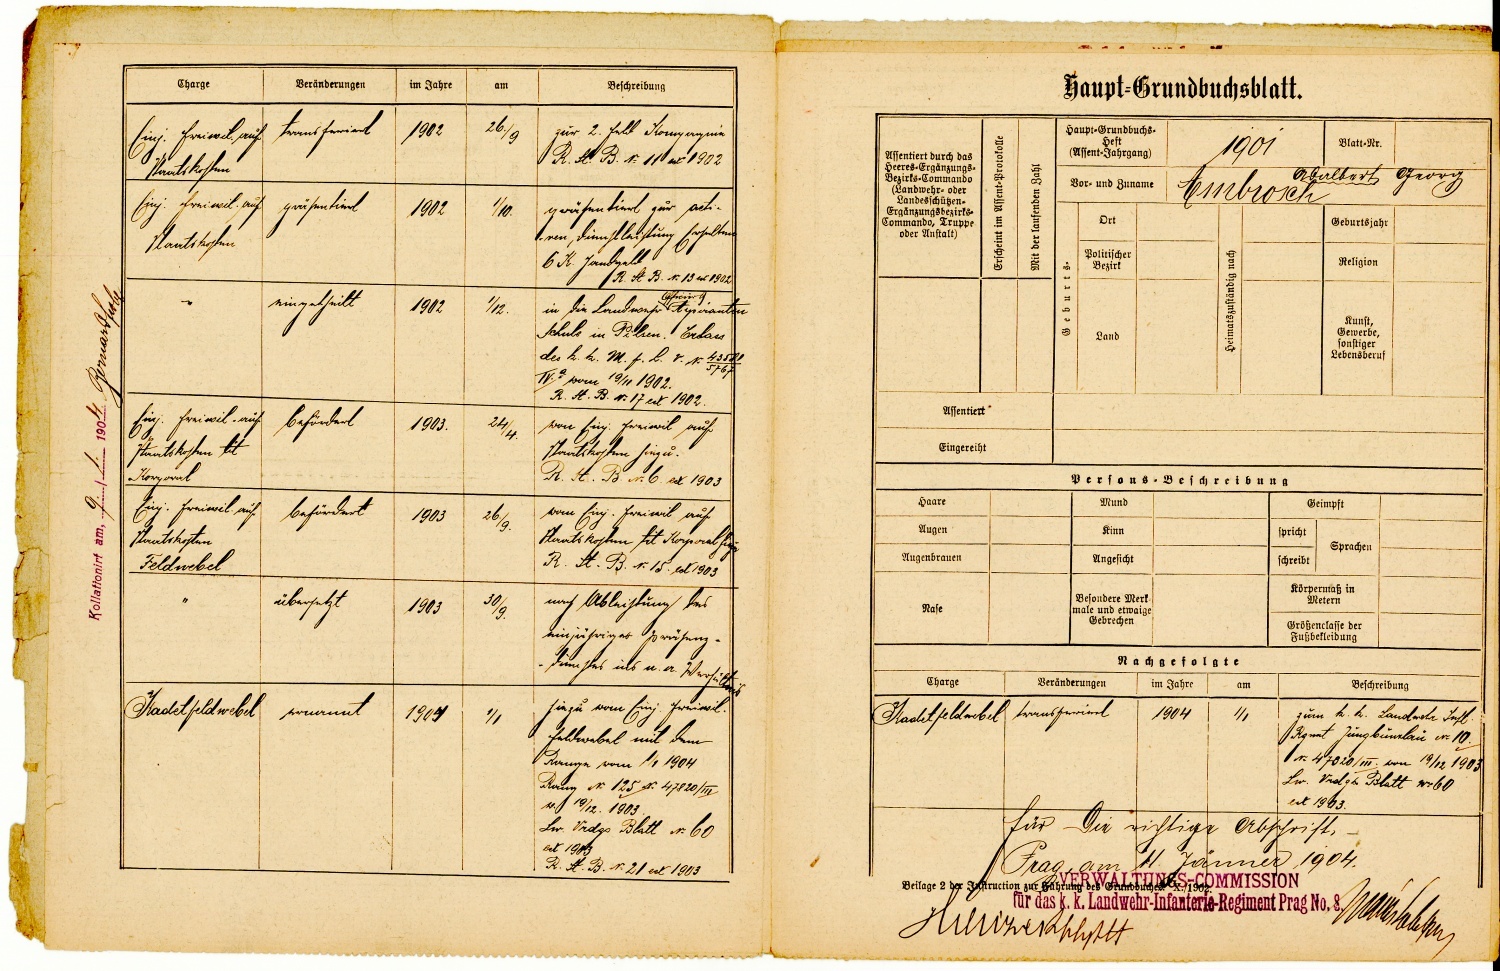 Charge Veränderungen im Jahre am Beschreibung
Einj. Freiwil. auf transferiert 1902 26/9 zur 2. Feld Kompagnie
Staatskosten R. St. B. № 11 ex 1902
Einj. Freiwil. auf präsentiert 1902 1/10. präsentiert zur acti-
Staatskosten ven Dienstleistung Erhalten
6 K. Handgeld
R. St. B. № 13 ex 1902
" eingetheilt 1902 1/12. in die Landwehr Aspiranten
schule in Pilsen. Erlass
des k. k. M. f. L. V. №
IV a vom 19/11 1902.
R. St. B. № 17 ex 1902.
Einj. Freiwil. auf befördert 1903. 24/4. vom Einj. Freiwil auf
Staatskosten tit Staatskosten hiezu.
Korporal R. St. B. № 6 ex 1903
Einj. Freiwil auf befördert 1903 26/9. vom Einj. Freiwil auf
Staatskosten Staatskosten tit Korporal hiezu
Feldwebel R. St. B. № 15. ex 1903
" übersetzt 1903 30/9. nach Ableistung des
einjähriges Präsenz-
-dienstes ins n. a. Verhältnis
Kadetfeldwebel ernannt 1904 1/1 hiezu vom Einj. Freiwil.
Feldwebel mit dem
Range vom 1/1 1904
Rang № 125 № 47820/III
v. 19/12. 1903.
Lw. Vrdgs Blatt № 60
ex 1903
R. St. B. № 21 ex 1903
Kollationirt am, 9./1. 1904
Haupt-Grundbuchsblatt.
Assentiert durch das
Heeres-Ergänzungs-
Bezirks-Commando
(Landwehr- oder
Landesschützen-
Ergänzungsbezirks-
Commando, Truppe
oder Anstalt)
Erscheint im Assent-Protokolle
Mit der laufenden Zahl
Haupt-Grundbuchs-
Heft
(Assent-Jahrgang)
1901
Blatt-Nr.
Vor- und Zuname Ambrosch Adalbert Georg
Geburts-
Ort
Politischer
Bezirk
Land
Heimatszuständig nach
Geburtsjahr
Religion
Kunst,
Gewerbe,
sonstiger
Lebensberuf
Assentiert
Eingereiht
Persons-Beschreibung
Haare Mund Geimpft
Augen Kinn spricht Sprachen
Augenbrauen Angesicht schreibt
Nase
Besondere Merk-
male und etwaige
Gebrechen
Körpermaß in
Metern
Größenclasse der
Fußbekleidung
Nachgefolgte
Charge Veränderungen im Jahre am Beschreibung
Kadetfeldwebel transferiert 1904 1/1 zum k. k. Landwehr Inft.
Rgmt Jungbunzlau № 10.
№ 47820/III. von 19/12 1903
Lw. Vrdgs Blatt № 60
ex 1903.
Für die richtige Abschrift.
Prag, am 11. Jänner 1904.
Beilage 2 der Instruction zur Führung des Grundbuches X. 1902
VERWALTUNGS-COMMISSION
für das k. k. Landwehr-Infanterie-Regiment Prag No. 8